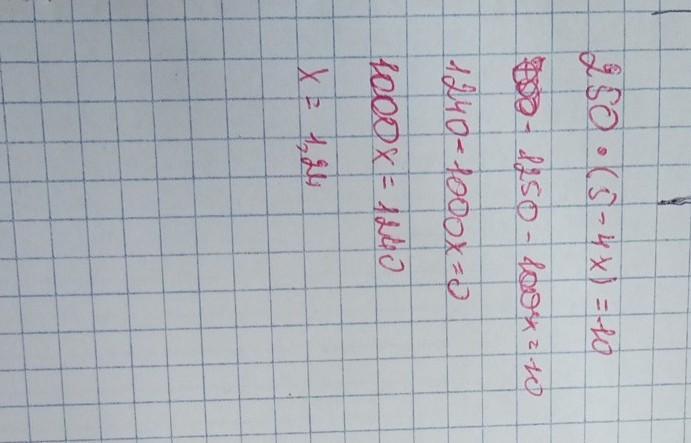 250 • (5 - 4x) = 10
1250 - 1000x = 10
1240 - 1000x = 0
1000x = 1240
x = 1,24